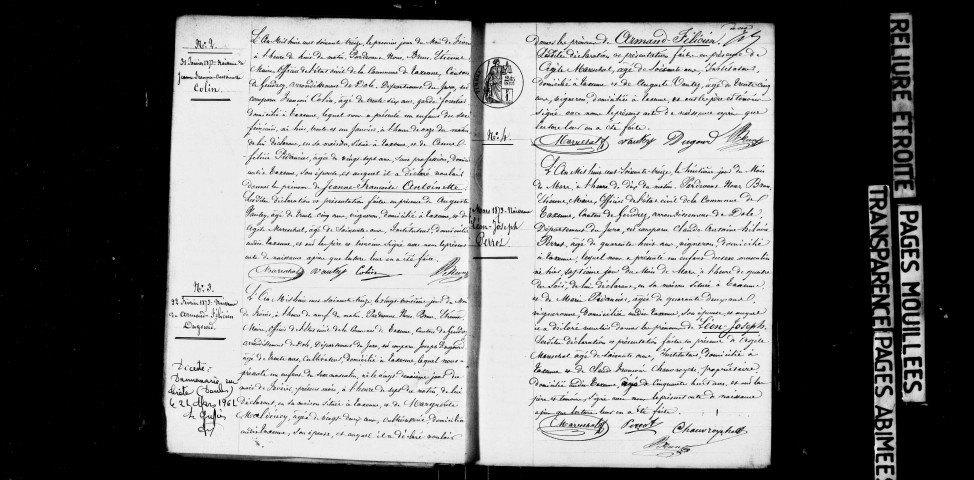 N° 2.
31 Janvier 1873. Naissance de
Jeanne-Françoise-Antoinette
Colin.
L'An Mil huit cent soixante treize, le premier jour du Mois de Février
à l'heure de huit du matin, Pardevant Nous Brun, Etienne,
Maire, Officier de l'état civil de la Commune de Taxenne, Canton
de Gendrey, arrondissement de Dole, Département du Jura, est
comparu François Colin, âgé de trente six ans, garde forestier
domicilié à Taxenne, lequel nous a présenté un enfant du sexe
féminin, né hier, trente et un Janvier, à l'heure de onze du matin
de lui déclarant, en sa maison, située à Taxenne, et de
âgée de vingt sept ans, sans profession, domiciliée
audit Taxenne, son épouse, et auquel il a déclaré vouloir
donner le prénom de Jeanne-Françoise Antoinette
Lesdites déclaration et présentation faites en présence de Auguste
Vautey, âgé de trente cinq ans, vigneron, domicilié à Taxenne, et de
Agile Mareschal, âgé de soixante ans, Instituteur, domicilié
audit Taxenne, et ont les père et témoins signé avec nous le présent
acte de naissance après que lecture leur en a été faite.
Mareschal Vautey Colin Brun
N° 3.
22 Février 1873. Naissance
de Armand-Félicien
L'An Mil huit cent soixante treize, le vingt troisième jour du Mois
de Février, à l'heure de neuf du matin, Pardevant Nous Brun, Etienne,
Maire, Officier de l'état civil de la Commune de Taxenne, Canton de Gendrey,
arrondissement de Dole, Département du Jura, est comparu Joseph
âgé de trente ans, cultivateur, domicilié à Taxenne, lequel nous a
présenté un enfant du sexe masculin, né le vingt deuxième jour du
mois de Février, présent mois, à l'heure de sept du matin, de lui
déclarant, en sa maison située à Taxenne, et de Marguerite
âgée de vingt deux ans, cultivatrice, domiciliée
audit Taxenne, son épouse, et auquel il a déclaré vouloir
Décédé
à
(Doubs)
le 21 Mars 1961
donner le prénom de Armand-Félicien.
Lesdites déclaration et présentation faites en présence de
Agile Mareschal, âgé de soixante ans, Instituteur,
domicilié à Taxenne, et de Auguste Vautey, âgé de trente cinq
ans, vigneron, domicilié à Taxenne, et ont les père et témoins
signé avec nous le présent acte de naissance après que
lecture leur en a été faite.
Mareschal Vautey Brun
N° 4.
Mars 1873. Naissance
Léon-Joseph
Perrot.
L'An Mil huit cent soixante treize, le huitième jour du Mois
de Mars, à l'heure de dix du matin, Pardevant Nous Brun,
Etienne, Maire, Officier de l'état civil de la Commune de
Taxenne, Canton de Gendrey, arrondissement de Dole,
Département du Jura, est comparu Claude Antoine
Perrot, âgé de quarante huit ans, vigneron, domicilié
à Taxenne, lequel nous a présenté un enfant du sexe masculin
né hier, septième jour du Mois de Mars, à l'heure de quatre
du soir, de lui déclarant, en sa maison située à Taxenne,
et de Marie âgée de quarante deux ans,
vigneronne, domiciliée audit Taxenne, son épouse, et auquel
il a déclaré vouloir donner les prénoms de Léon Joseph.
Lesdites déclaration et présentation faites en présence de Agile
Mareschal âgé de soixante ans, Instituteur, domicilié à
Taxenne, et de Claude François propriétaire
domicilié audit Taxenne, âgé de cinquante huit ans, et ont les
père et témoins, signé avec nous le présent acte de naissance
après que lecture leur en a été faite.
Mareschal Perrot
Brun
RELIURE ETROITE
PAGES MOUILLEES
TRANSPARENCE
PAGES ABIMEES